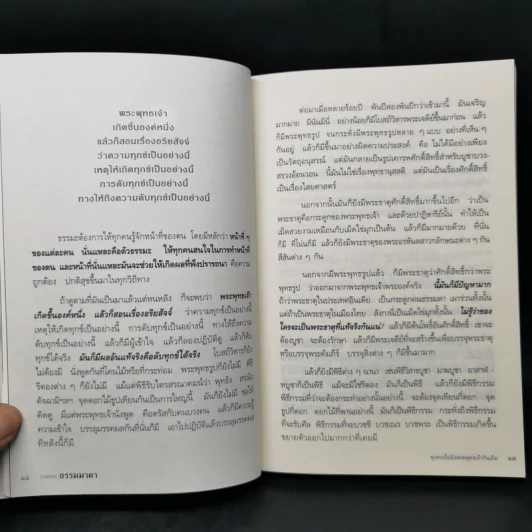 พระพุทธเจ้า
เกิดขึ้นองค์หนึ่ง
แล้วก็สอนเรื่องอริยสัจง์
ว่าความทุกข์เป็นอย่างนี้
เหตุให้เกิดทุกข์เป็นอย่างนี้
การดับทุกข์เป็นอย่างนี้
ทางให้ถึงความดับทุกข์เป็นอย่างนี้
ธรรมะต้องการให้ทุกคนรู้จักหน้าที่ของตน โดยมีหลักว่า หน้าที่ ๆ
ของแต่ละคน นั่นแหละคือตัวธรรมะ ให้ทุกคนสนใจในการทำหน้าที่
ของตน และหน้าที่นั่นแหละมันจะช่วยให้เกิดผลที่พึงปรารถนา คือความ
ถูกต้อง ปกติสุขขึ้นมาในทุกวิถีทาง
ถ้าดูตามที่มันเป็นมาแล้วแต่หนหลัง ก็จะพบว่า พระพุทธเจ้า
เกิดขึ้นองค์หนึ่ง แล้วก็สอนเรื่องอริยสัจจ์ ว่าความทุกข์เป็นอย่างนี้
เหตุให้เกิดทุกข์เป็นอย่างนี้ การดับทุกข์เป็นอย่างนี้ ทางให้ถึงความดับ
ทุกข์เป็นอย่างนี้ แล้วก็มีผู้เข้าใจ แล้วก็ลองปฏิบัติดู แล้วก็ดับ
ทุกข์ได้จริง มันก็มีผลอันแท้จริงคือดับทุกข์ได้จริง โบสถ์วิหารก็ยัง
ไม่ต้องมี นั่งพูดกันที่โคนไม้หรือที่กระท่อม พระพุทธรูปก็ยังไม่มี พิธี
รีตองต่าง ๆ ก็ยังไม่มี
จุดดอกไม้ธูปเทียนกันเป็นการใหญ่นี้ มันก็ยังไม่มี
คิดดู มีแต่พระพุทธเจ้านั่งพูด คือตรัสกับคนบางคน แล้วก็มีความรู้
ความเข้าใจ บรรลุมรรคผลกันที่นั่นก็มี เอาไปปฏิบัติแล้วบรรลุมรรคผล
ทีหลังนี้ก็มี
๑๘ ธรรมมาตา
ต่อมาเมื่อหลายร้อยปี พันปีสองพันปีกว่าเข้ามานี้ มันเจริญ
มากมาย มีนั่นมีนี่ อย่างน้อยก็มีโบสถ์วิหารพระเจดีย์ขึ้นมาก่อน แล้ว
ก็มีพระพุทธรูป จนกระทั่งมีพระพุทธรูปหลาย ๆ แบบ อย่างที่เห็น ๆ
กันอยู่ แล้วก็มีขึ้นมาอย่างผิดความประสงค์ คือ ไม่ได้มีอย่างเพียง
เป็นวัตถุอนุสรณ์ แต่มันกลายเป็นรูปเคารพศักดิ์สิทธิ์สำหรับบูชาบวง-
สรวงอ้อนวอน นี้มันไม่ใช่เรื่องพุทธานุสสติ แต่มันเป็นเรื่องศักดิ์สิทธิ์
เป็นเรื่องไสยศาสตร์
นอกจากนั้นมันก็ยังมีพระธาตุศักดิ์สิทธิ์มากขึ้นไปอีก ว่าเป็น
พระธาตุคือกระดูกของพระพุทธเจ้า และด้วยปาฏิหาริย์ก็มี ทำให้เป็น
เม็ดสวยงามเหมือนกับเม็ดไข่มุกก็มี แล้วก็มีมากมายด้วย ที่นั่น
ก็มี ที่โน่นก็มี แล้วก็ยังมีพระธาตุของพระอรหันตสาวกลักษณะต่าง ๆ กัน
สีสันต่าง ๆ กัน
นอกจากมีพระพุทธรูปแล้ว ก็มีพระธาตุว่าศักดิ์สิทธิ์กว่าพระ-
พุทธรูป ว่าออกมาจากพระพุทธเจ้าพระองค์จริง นี้มันก็มีปัญหามาก
ถ้าว่าพระธาตุในประเทศอินเดีย เป็นกระดูกคนธรรมดา เผาร่วนทั้งนั้น
แต่ถ้าเป็นพระธาตุในเมืองไทย ลังกานี้เป็นเม็ดไข่มุกทั้งนั้น ไม่รู้ว่าของ
ใครจะเป็นพระธาตุที่แท้จริงกันแน่? แล้วก็มีต้นโพธิ์อันศักดิ์สิทธิ์ เขาจะ
ต้องบูชา จะต้องรักษา แล้วก็มีพระเจดีย์ที่จะสร้างขึ้นเพื่อบรรจุพระธาตุ
หรือบรรจุพระคัมภีร์ บรรจุสิ่งต่าง ๆ ก็มีขึ้นมามาก
แล้วก็ยังมีพิธีต่าง ๆ นานา เช่นพิธีวิสาขบูชา มาฆบูชา อาสาฬ-
หบูชาก็เป็นพิธี แม้จะมีไข้รีตอง มันก็เป็นพิธี แล้วก็ยังมีพิธีกรรม
พิธีที่ว่าจะต้องกระทำอย่างนั้นอย่างนี้ จะต้องจุดเทียนกี่ดอก จุด
ธูปกี่ดอก ดอกไม้กี่พาน อย่างนี้ มันก็เป็นพิธีกรรม กระทั่งถึงพิธีกรรม
ที่จะรับศีล พิธีกรรมที่จะบวชชี บวชเณร บวชพระ เป็นพิธีกรรมเกิดขึ้น
ขยายตัวออกไปมากกว่าที่เคยมี
๑๙